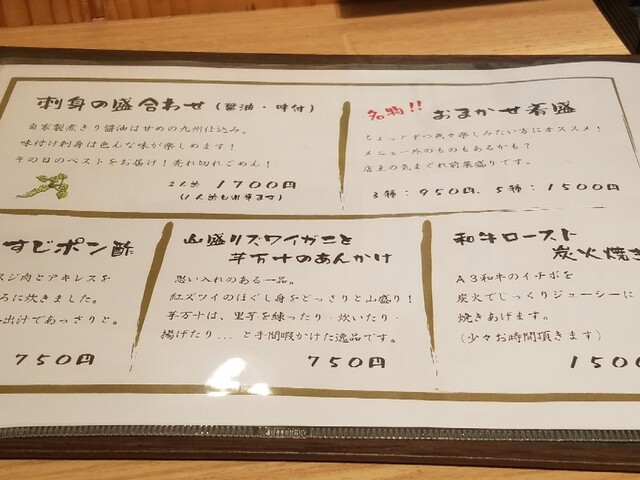 刺身の盛合わせ(醤油・味付)
自家製煮きり醤油は甘めの九州仕込み。
味付け刺身は色んな味が楽しめます!
その日のベストをお届け!売れ切れごめん!
2人め 1700円
(1人めも出来ます)
名物!! おまかせ肴盛
ちょっとずつ色々楽しみたい方にオススメ!
メニュー外のものもあるかも?
店主の気まぐれ前菜盛りです。
3種:950円、5種:1500円
すじポン酢
スジ肉とアキレスを
ろに炊きました。
出汁であっさりと。
750円
山盛りズワイガニと
芋万十のあんかけ
思い入れのある一品。
紅ズワイのほぐし身をどっさりと山盛り!
芋万十は、里芋を練ったり・炊いたり・
揚げたり...と手間暇かけた逸品です。
750円
和牛ロースト
炭火焼き
A3和牛のイチボを
炭火でじっくりジューシーに
焼きあげます。
(少々お時間頂きます)
1500